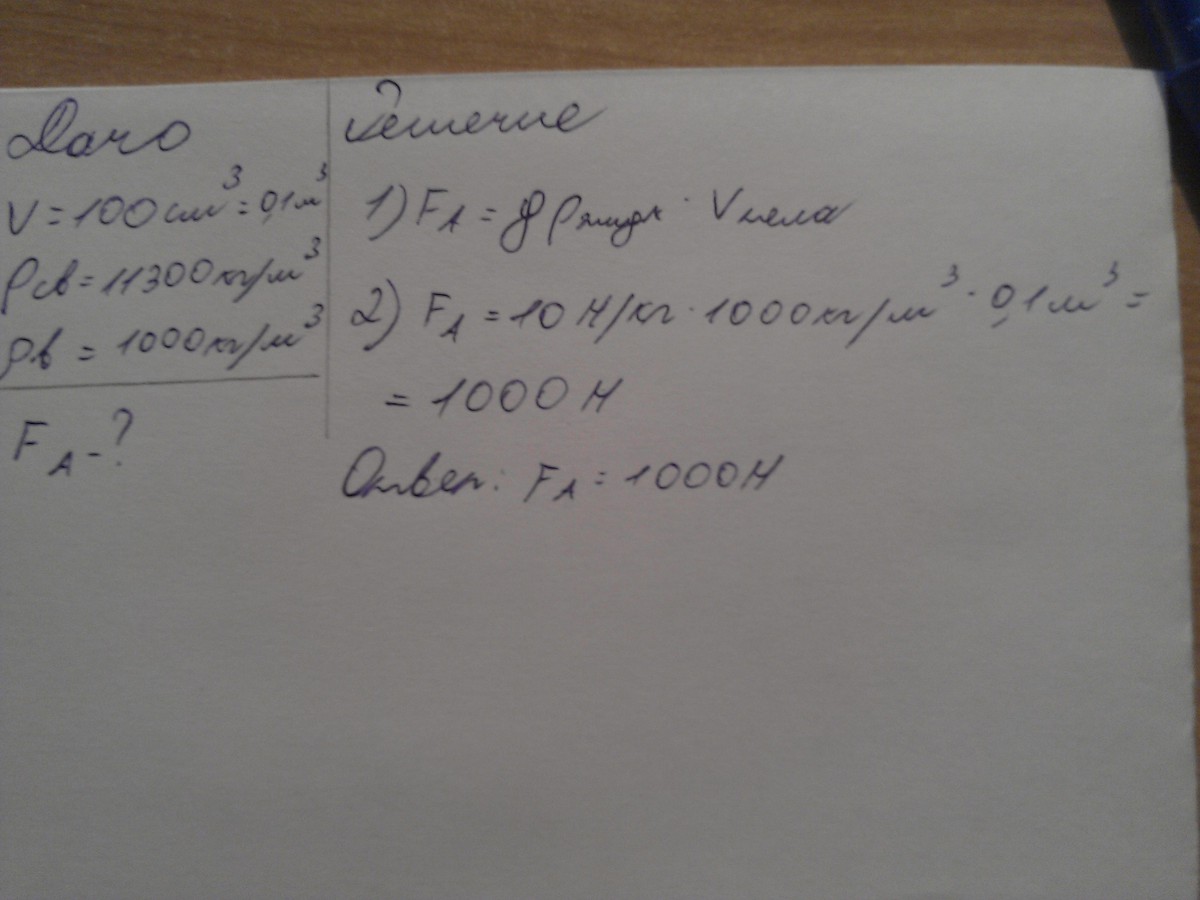 Дано
V = 100 см³ = 0,1 м³
ρсв = 11300 кг/м³
ρв = 1000 кг/м³
F_A - ?
Решение
1) F_A = g ρжидк · Vтела
2) F_A = 10 Н/кг · 1000 кг/м³ · 0,1 м³ =
= 1000 Н
Ответ: F_A = 1000 Н